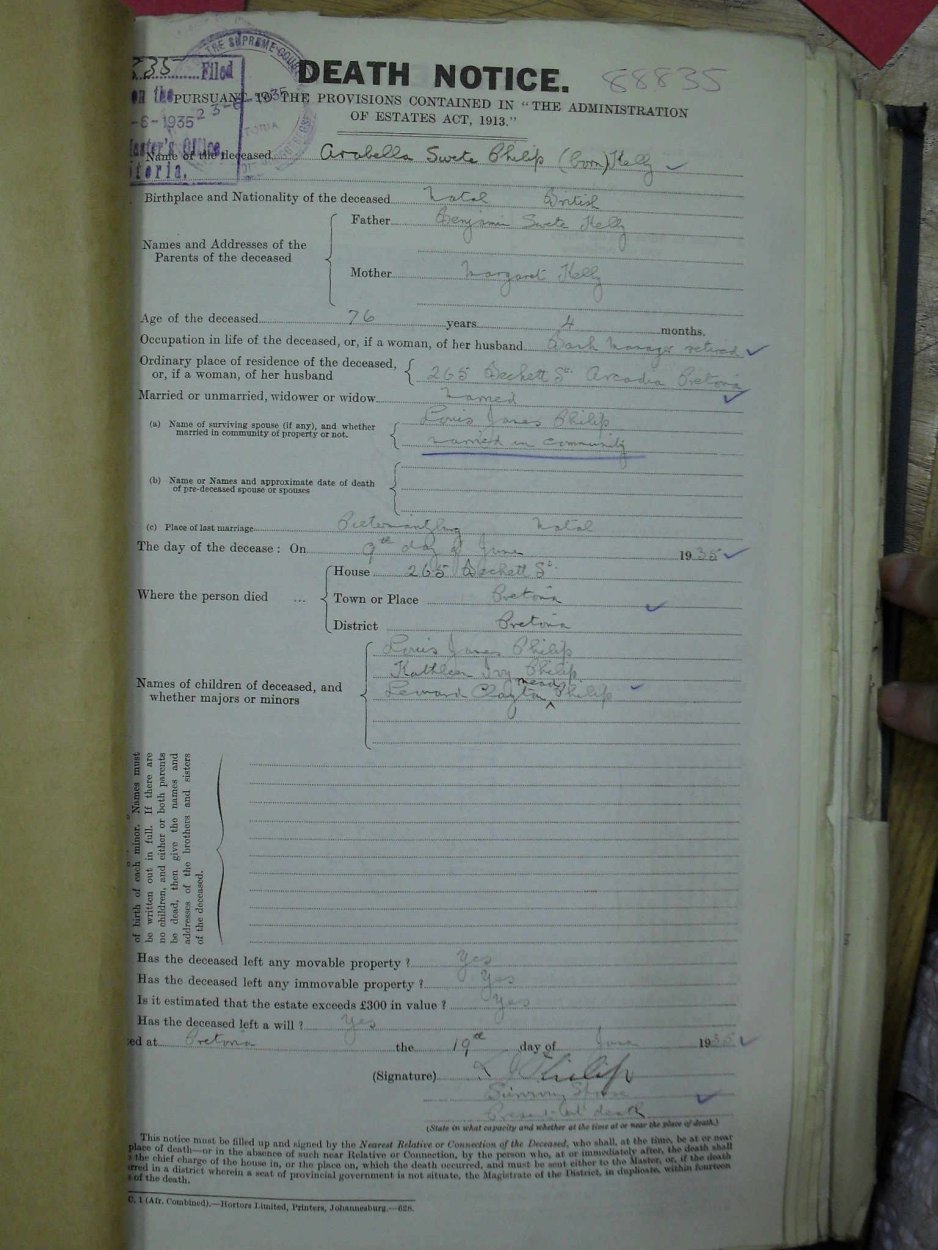 THE SUPREME COURT
DEATH NOTICE.
88835
Filed
on the
-6-1935
Master's Office,
PURSUANT TO THE PROVISIONS CONTAINED IN "THE ADMINISTRATION
OF ESTATES ACT, 1913."
Name of the Deceased Arabella Swete Philip (born) Kelly
Birthplace and Nationality of the deceased Natal British
Names and Addresses of the
Parents of the deceased
Father Benjamin Swete Kelly
Mother Margaret Kelly
Age of the deceased 76 years 4 months.
Occupation in life of the deceased, or, if a woman, of her husband Bank Manager retired
Ordinary place of residence of the deceased,
or, if a woman, of her husband
265 Beckett St. Arcadia Pretoria
Married or unmarried, widower or widow married
(a) Name of surviving spouse (if any), and whether
married in community of property or not.
Louis James Philip
married in community
(b) Name or Names and approximate date of death
of pre-deceased spouse or spouses
(c) Place of last marriage Pietermaritzburg Natal
The day of the decease: On 9th day of June 1935
Where the person died ...
House 265 Beckett St.
Town or Place Pretoria
District Pretoria
Names of children of deceased, and
whether majors or minors
Louis James Philip
Kathleen Ivy Philip
Philip
of birth of each minor. Names must
be written out in full. If there are
no children, and either or both parents
be dead, then give the names and
addresses of the brothers and sisters
of the deceased.
Has the deceased left any movable property? Yes
Has the deceased left any immovable property? Yes
Is it estimated that the estate exceeds £300 in value? Yes
Has the deceased left a will? Yes
ed at Pretoria the 19th day of June 1935
(Signature) L J Philip
Surviving Spouse
Present at death
(State in what capacity and whether at the time at or near the place of death.)
This notice must be filled up and signed by the Nearest Relative or Connection of the Deceased, who shall, at the time, be at or near
place of death—or in the absence of such near Relative or Connection, by the person who, at or immediately after, the death shall
the chief charge of the house in, or the place on, which the death occurred, and must be sent either to the Master, or, if the death
rred in a district wherein a seat of provincial government is not situate, the Magistrate of the District, in duplicate, within fourteen
of the death.
C. 1 (Afr. Combined).—Hortors Limited, Printers, Johannesburg.—628.